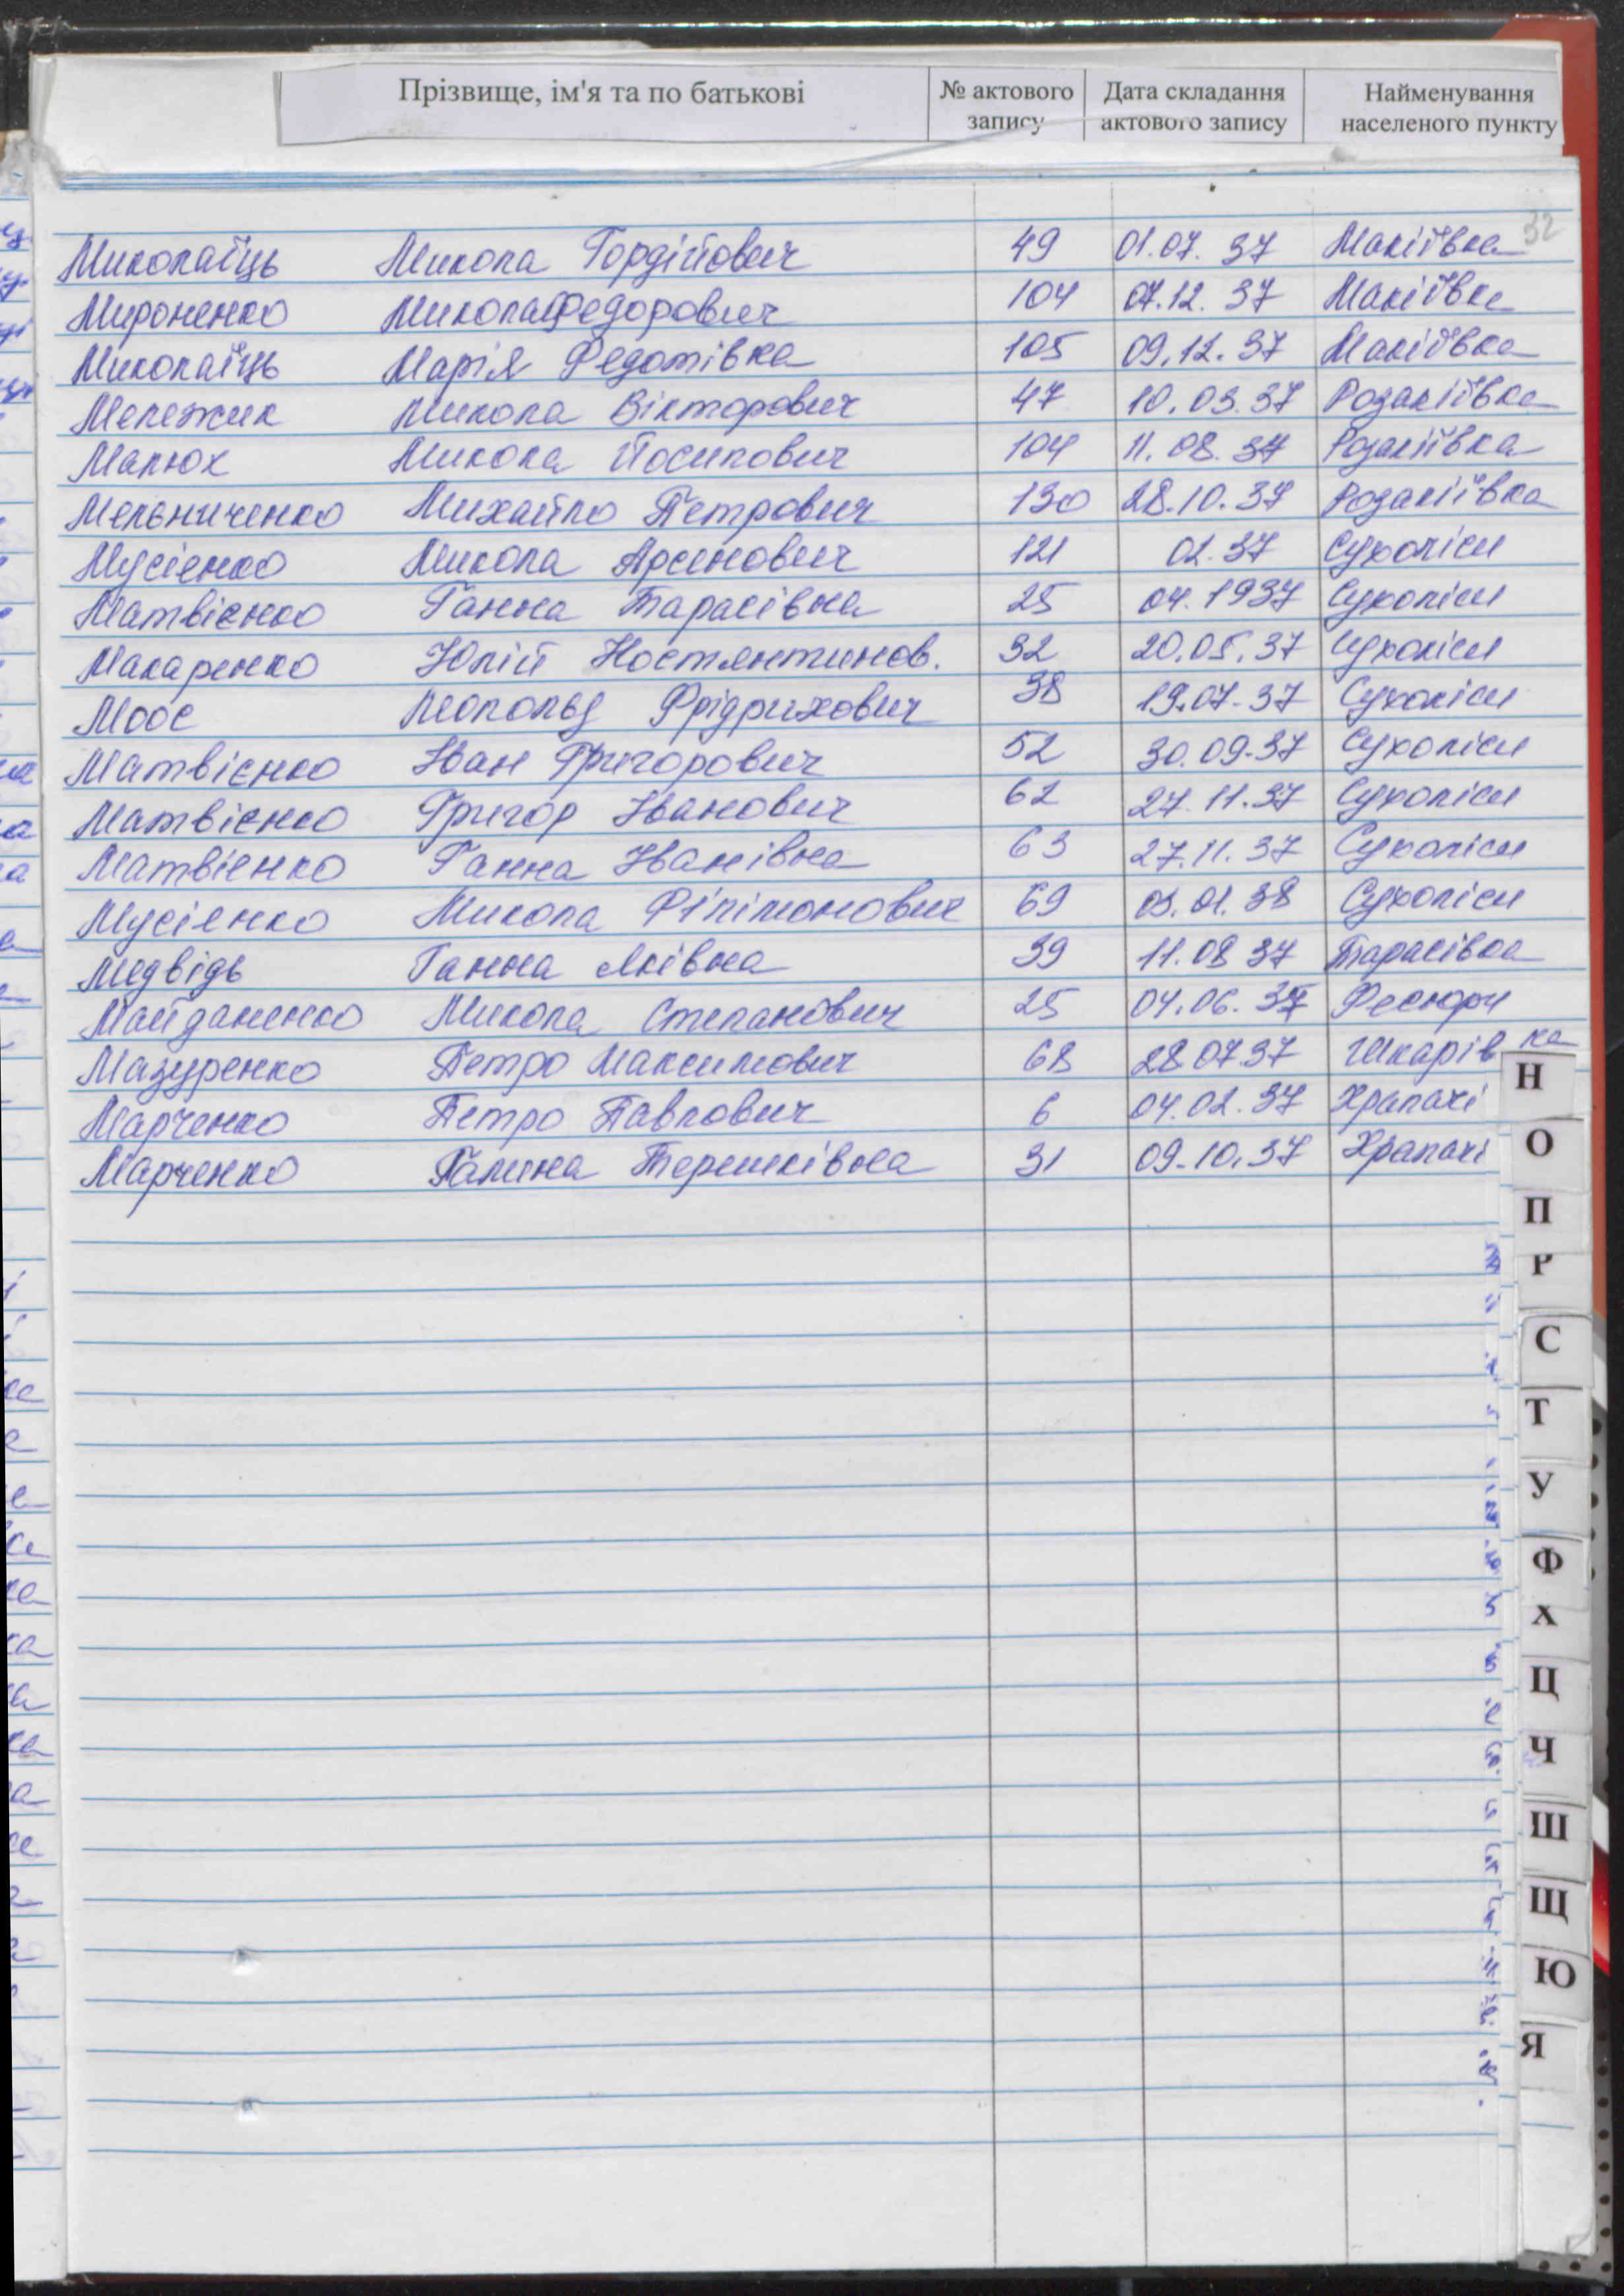 Прізвище, ім'я та по батькові № актового запису Дата складання актового запису Найменування населеного пункту
32
Миколаїць Микола Гордійович 49 01.07.37 Макіївка
Мироненко Микола Федорович 104 07.12.37 Макіївка
Миколаїць Марія Федотівна 105 09.12.37 Макіївка
Мележик Микола Вікторович 47 10.03.37 Розаліївка
Малюх Микола Йосипович 104 11.08.37 Розаліївка
Мельниченко Михайло Петрович 130 28.10.37 Розаліївка
Мусієнко Микола Арсенович 121 02.37 Сухоліси
Матвієнко Ганна Тарасівна 25 04.1937 Сухоліси
Макаренко Юлій Костянтинов. 32 20.05.37 Сухоліси
Моос Леопольд Фрідрихович 38 19.07.37 Сухоліси
Матвієнко Іван Григорович 52 30.09.37 Сухоліси
Матвієнко Григор Іванович 62 27.11.37 Сухоліси
Матвієнко Ганна Іванівна 63 27.11.37 Сухоліси
Мусієнко Микола Філімонович 69 03.01.38 Сухоліси
Медвідь Ганна Яківна 39 11.08.37 Тарасівка
Майданенко Микола Степанович 25 04.06.37 Фесюри
Мазуренко Петро Максимович 68 28.07.37 Шкарівка
Марченко Петро Павлович 6 04.02.37 Храпачі
Марченко Галина Терешківна 31 09.10.37 Храпачі
Н
О
П
Р
С
Т
У
Ф
Х
Ц
Ч
Ш
Щ
Ю
Я